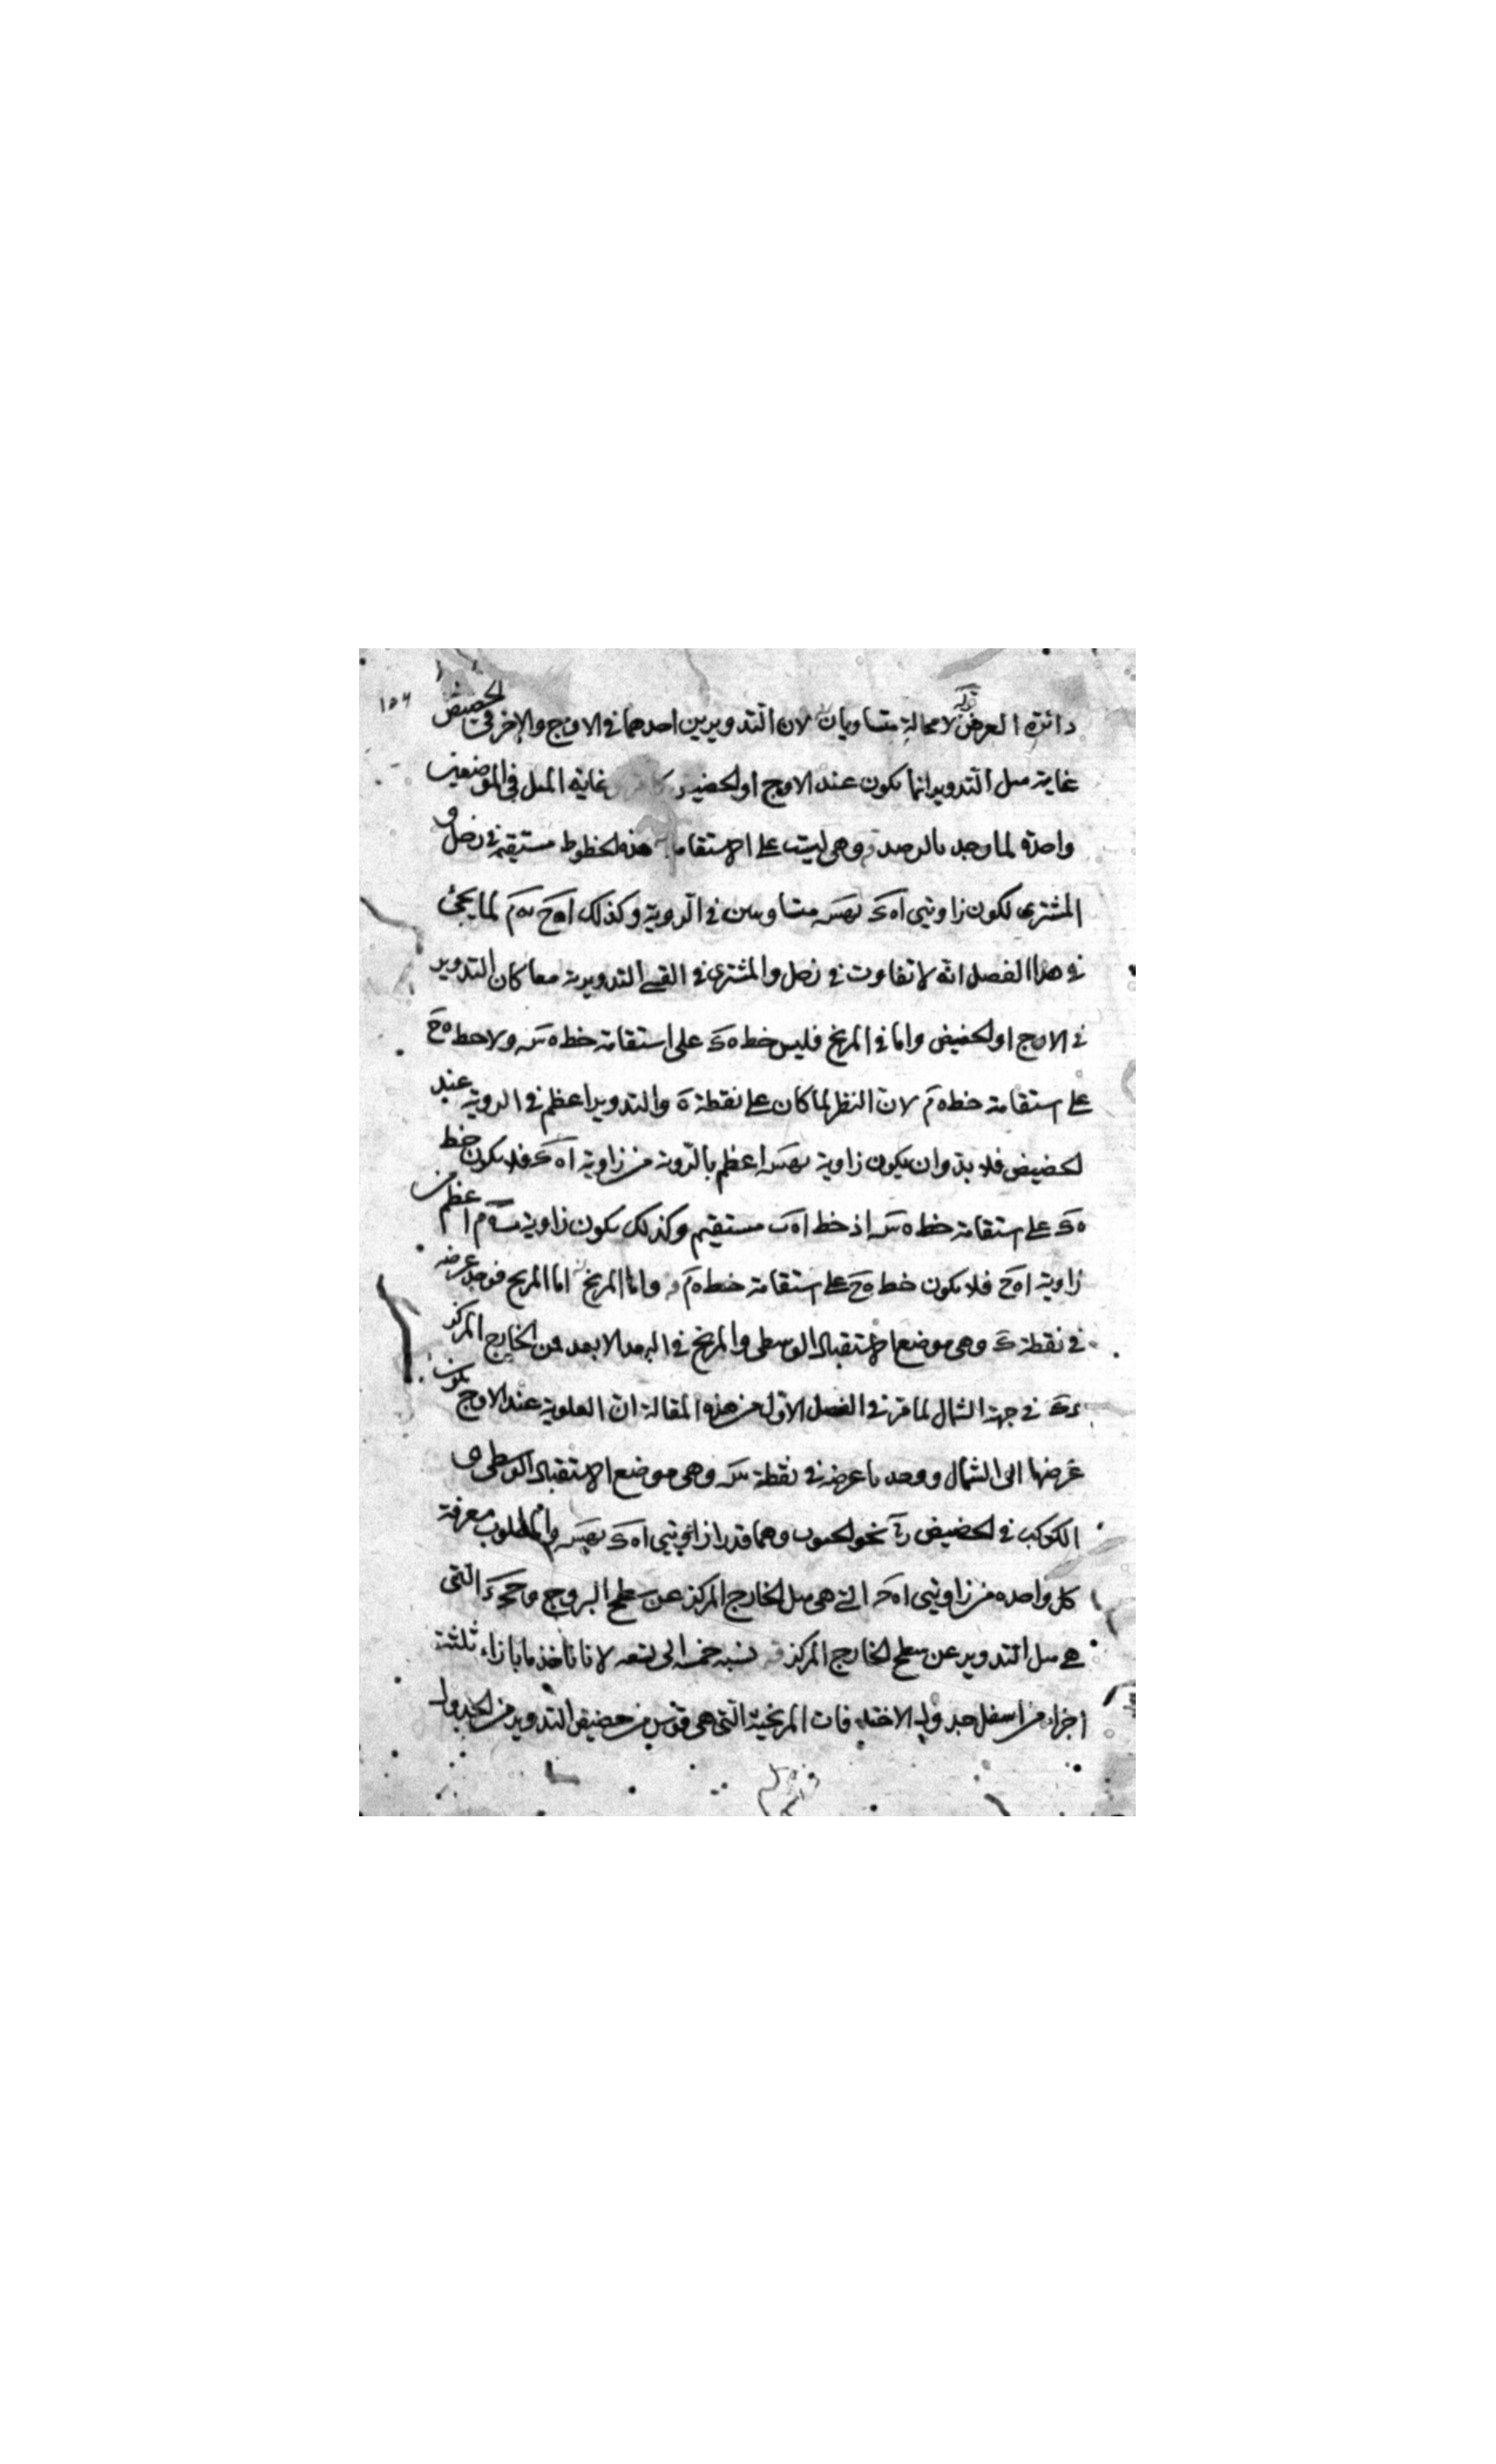 دائرة العرض لا محالة متساويان لان التدويرين احدهما في الاوج والاخر في الحضيض
غاية ميل التدوير انما يكون عند الاوج او الحضيض وغاية الميل في الموضعين
واحدة لما وجد بالرصد وهي ليست على الاستقامة هذه الخطوط مستقيمة في زحل و
المشترى لكون زاويتي اه‍ک متساويتين في الروية وكذلك لما يجئ
في هذا الفصل انه لا تفاوت في زحل والمشترى في القسي التدويرية معا كان التدوير
في الاوج او الحضيض واما في المريخ فليس خط ه‍ک على استقامة خط ه‍س ولا خط ه‍ح
على استقامة خط ه‍م لان النظر لما كان على نقطة ه‍ والتدوير اعظم في الروية عند
الحضيض فلا بد وان يكون زاوية اعظم بالروية من زاوية اه‍ک فلا يكون خط
ه‍ک على استقامة خط ه‍س اذ خط اه‍ب مستقيم وكذلك يكون زاوية اعظم من
زاوية اه‍ح فلا يكون خط ه‍ح على استقامة خط ه‍م واما المريخ اما المريخ فوجد عرضه
في نقطة ک وهي موضع الاستقبال الوسطى والمريخ في البعد الابعد من الخارج المركز
في جهة الشمال لما مر في الفصل الاول من هذه المقالة ان العلوية عند الاوج يكون
عرضها الى الشمال ووجد عرضه في نقطة س وهي موضع الاستقبال الوسطى و
الكوكب في الحضيض نحو الجنوب وهما قدرا زاويتي اه‍ک واما المطلوب معرفة
كل واحدة من زاويتي اه‍ح التي هي ميل الخارج المركز عن سطح البروج التي
هي ميل التدوير عن سطح الخارج المركز نسبة خمسة الى تسعة لانا ناخذ ما بازاء ثلثة
اجزاء من اسفل جدول الاختلافات المريخية التي هي قوس من حضيض التدوير من الجدول